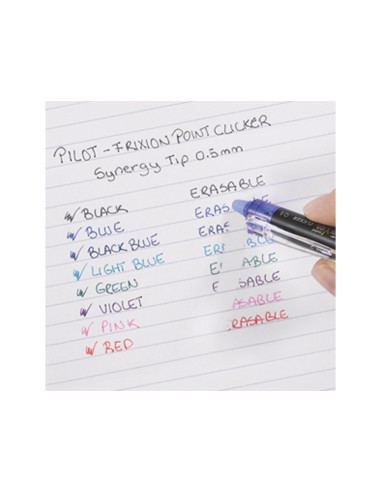 PILOT - FRIXION POINT CLICKER
Synergy Tip 0.5mm
ERASABLE
BLACK
ERAS LE
BLUE
ERAS
BLACK BLUE
ER BLE
LIGHT BLUE
E ABLE
GREEN
E SABLE
VIOLET
ASABLE
PINK
RASABLE
RED